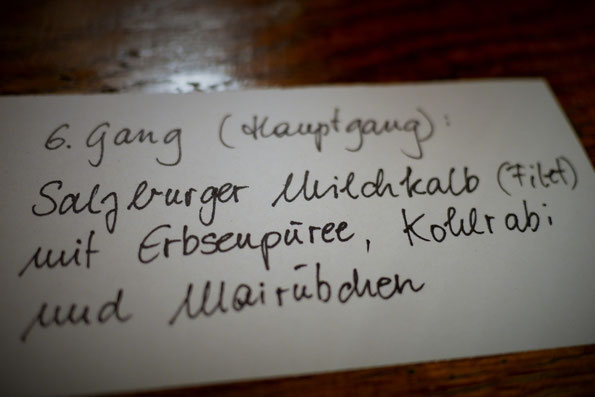 6. Gang (Hauptgang):
Salzburger Milchkalb (Filet)
mit Erbsenpüree, Kohlrabi
und Mairübchen